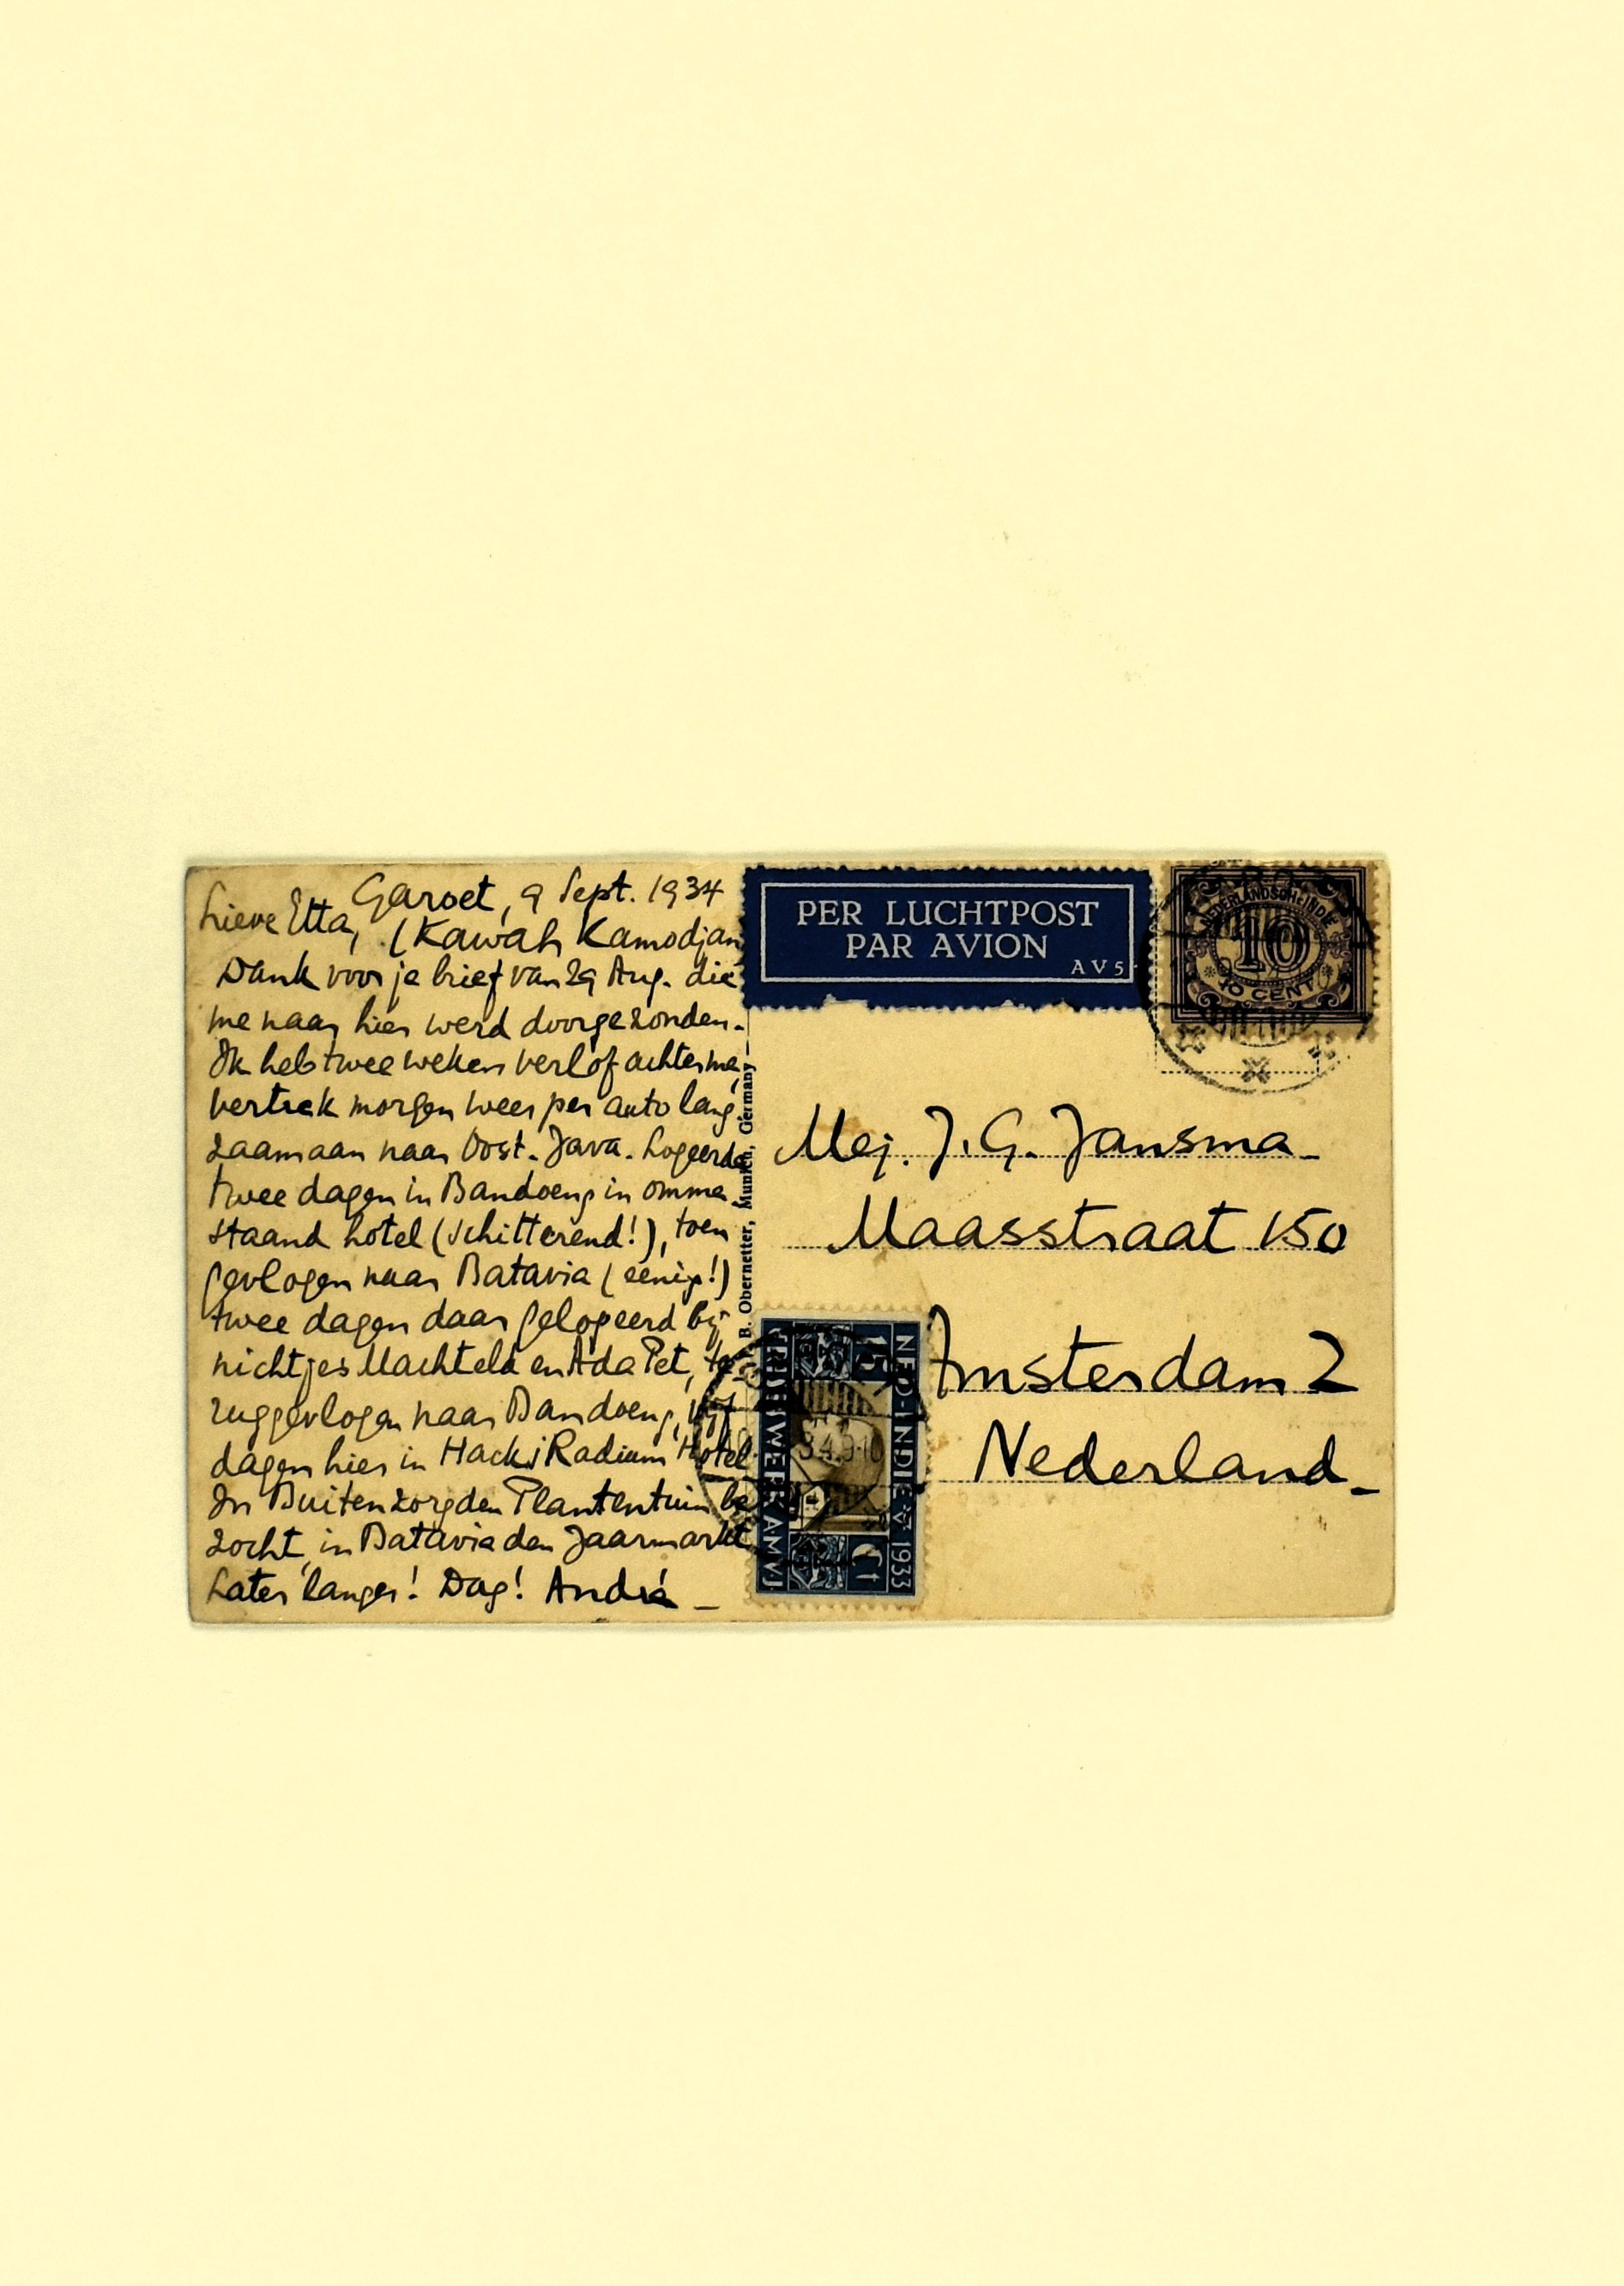 Garoet, 9 Sept. 1934
Lieve Etta, (Kawah Kamodjan
Dank voor je brief van 29 Aug. die
me naar hier werd doorgezonden.
Ik heb twee weken verlof achter me,
vertrek morgen weer per auto lang
zaamaan naar Oost-Java. Logeerde
twee dagen in Bandoeng in omme
staand hotel (schitterend!), toen
gevlogen naar Batavia (eenig!)
twee dagen daar gelogeerd bij
nichtjes Machteld en Ada Pet, te-
ruggevlogen naar Bandoeng, vijf
dagen hier in Hack's Radium Hotel
In Buitenzorg den Plantentuin be
zocht, in Batavia den Jaarmarkt
Later langer! Dag! André
B. Obernetter, Munich, Germany
PER LUCHTPOST
PAR AVION
AV5
NEDERLANDSCH-INDIE
10
10 CENT
Mej. J. G. Jansma
Maasstraat 150
Amsterdam Z
Nederland
NED-INDIE 1933
15 Ct
AMVJ
34.9-10